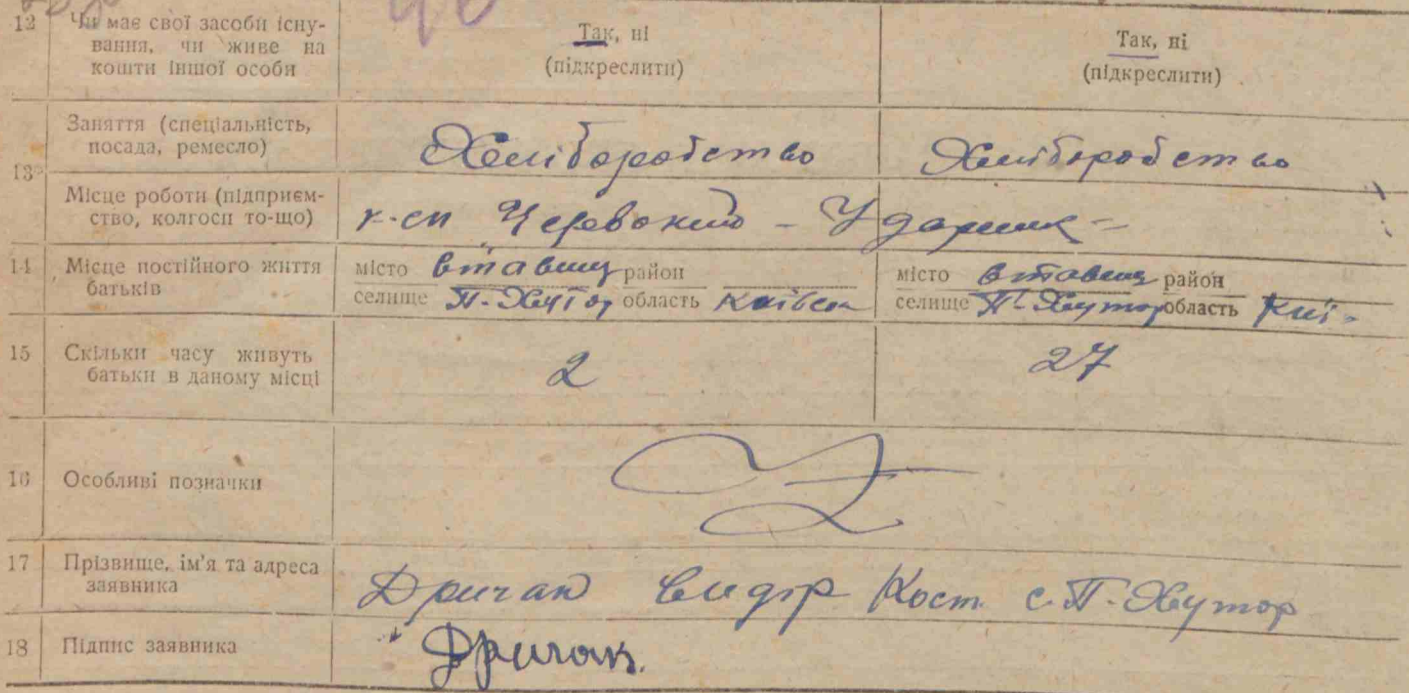 12 Чи має свої засоби існу-
вання, чи живе на
кошти іншої особи
Так, ні
(підкреслити)
Так, ні
(підкреслити)
13
Заняття (спеціальність,
посада, ремесло)
Хліборобство
Хліборобство
Місце роботи (підприєм-
ство, колгосп то-що)
к-сп Червоний - Ударник -
14 Місце постійного життя
батьків
місто Ставищ район
селище П-Хутор область Київськ
місто Ставищ район
селище П-Хутор область Киї-
15 Скільки часу живуть
батьки в даному місці
2
27
16 Особливі позначки
17 Прізвище, ім'я та адреса
заявника
Дричак Кост. с. П-Хутор
18 Підпис заявника
Дричак.